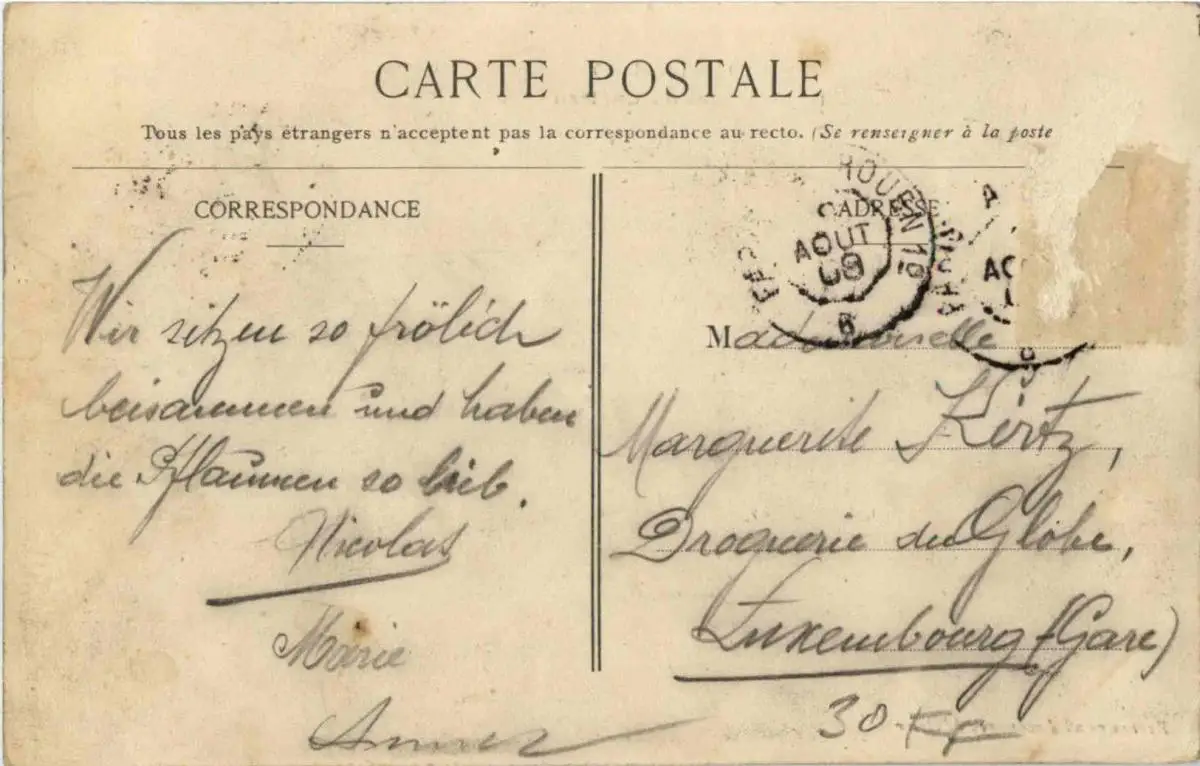 CARTE POSTALE
Tous les pays étrangers n'acceptent pas la correspondance au recto. (Se renseigner à la poste
CORRESPONDANCE
Wir sitzen so frölich
beisammen und haben
die Pflaumen so lieb.
Nicolas
Marie
ADRESSE
ROUEN
AOUT
08
Mademoiselle
Marguerite Kertz,
Droguerie du Globe,
Luxembourg (Gare)
30